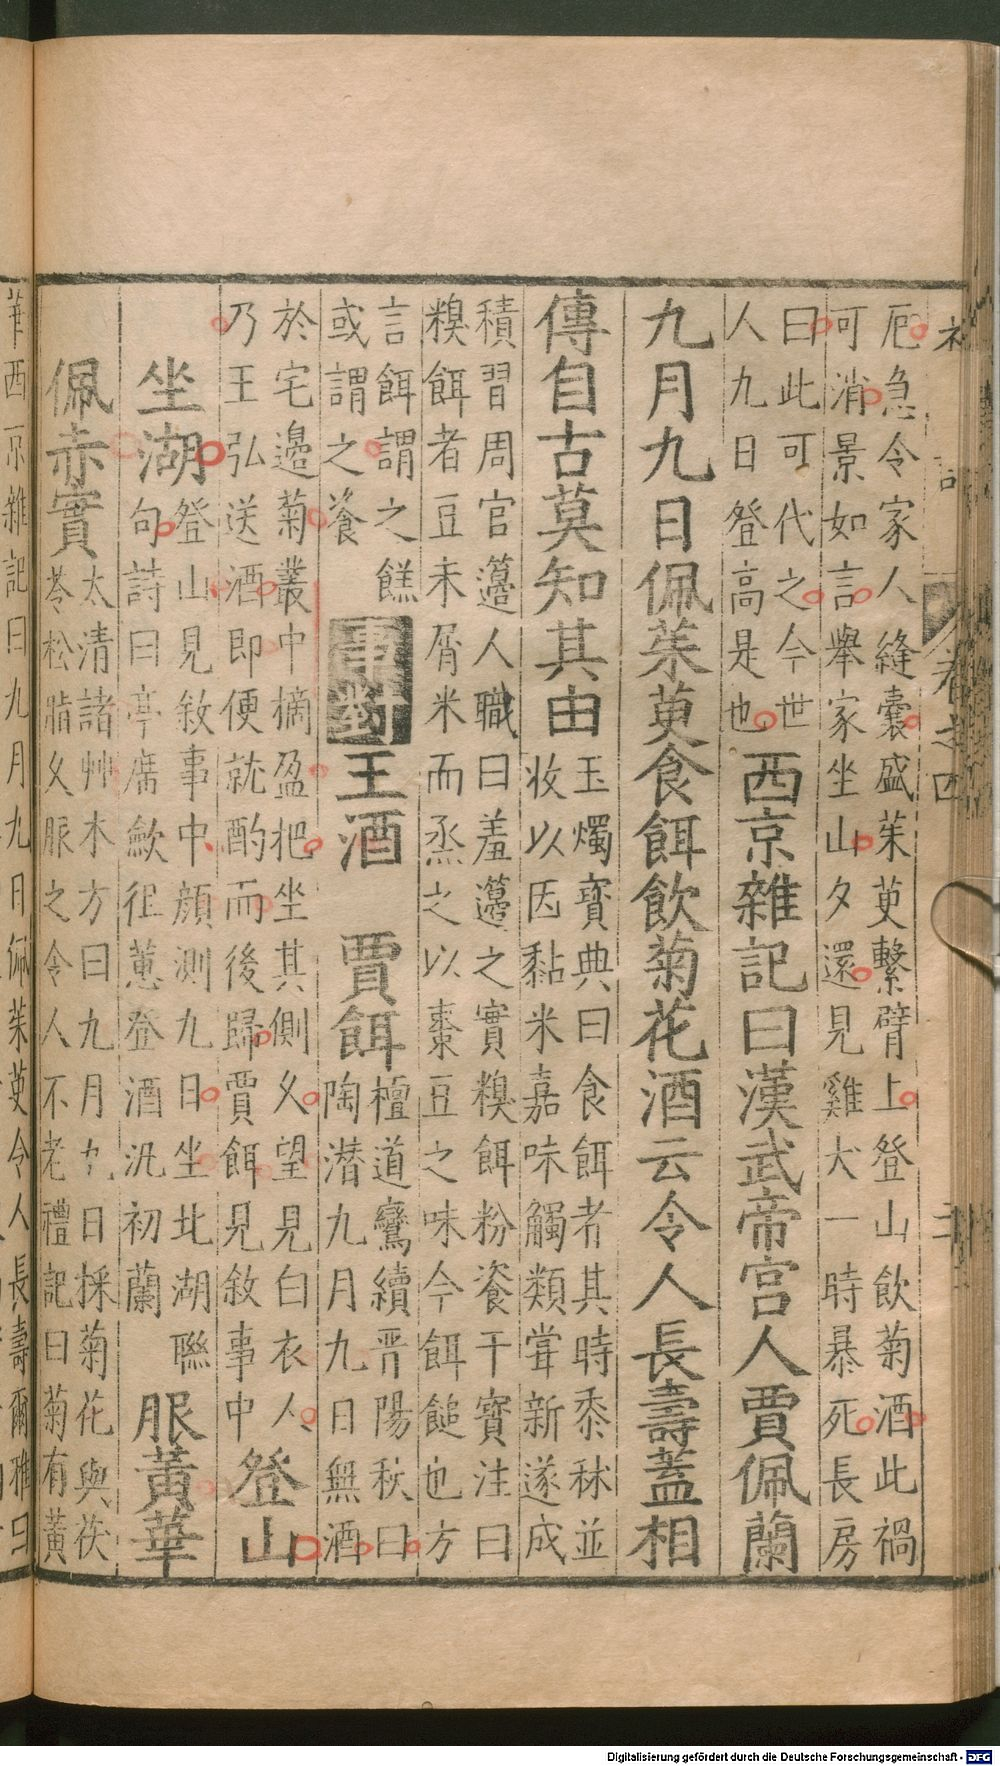 厄急令家人縫囊盛茱萸繫臂上登山飲菊酒此禍
可消景如言舉家坐山夕還見雞犬一時暴死長房
曰此可代之今世
人九日登高是也
西京雜記曰漢武帝宫人賈佩蘭
九月九日佩茱萸食餌飲菊花酒云令人長壽蓋相
傳自古莫知其由
玉燭寶典曰食餌者其時黍秫並
收以因黏米嘉味觸類嘗新遂成
積習周官籩人職曰羞籩之實糗餌粉餈干寶注曰
糗餌者豆末屑米而烝之以棗豆之味今餌䭔也方
言餌謂之餻
或謂之餈
事對
王酒 賈餌
檀道鸞續晋陽秋曰
陶潜九月九日無酒
於宅邊菊叢中摘盈把坐其側久望見白衣人
乃王弘送酒即便就酌而後歸賈餌見敘事中
登山
坐湖
登山見敘事中顔測九日坐北湖聮
句詩曰亭席歛徂蕙登酒汎初蘭
服黃華
佩赤實
太清諸艸木方曰九月九日採菊花與茯
苓松脂久服之令人不老禮記曰菊有黃
卷之四
華西京雜記曰九月九日佩茱萸令人長壽爾雅曰
Digitalisierung gefördert durch die Deutsche Forschungsgemeinschaft - DFG